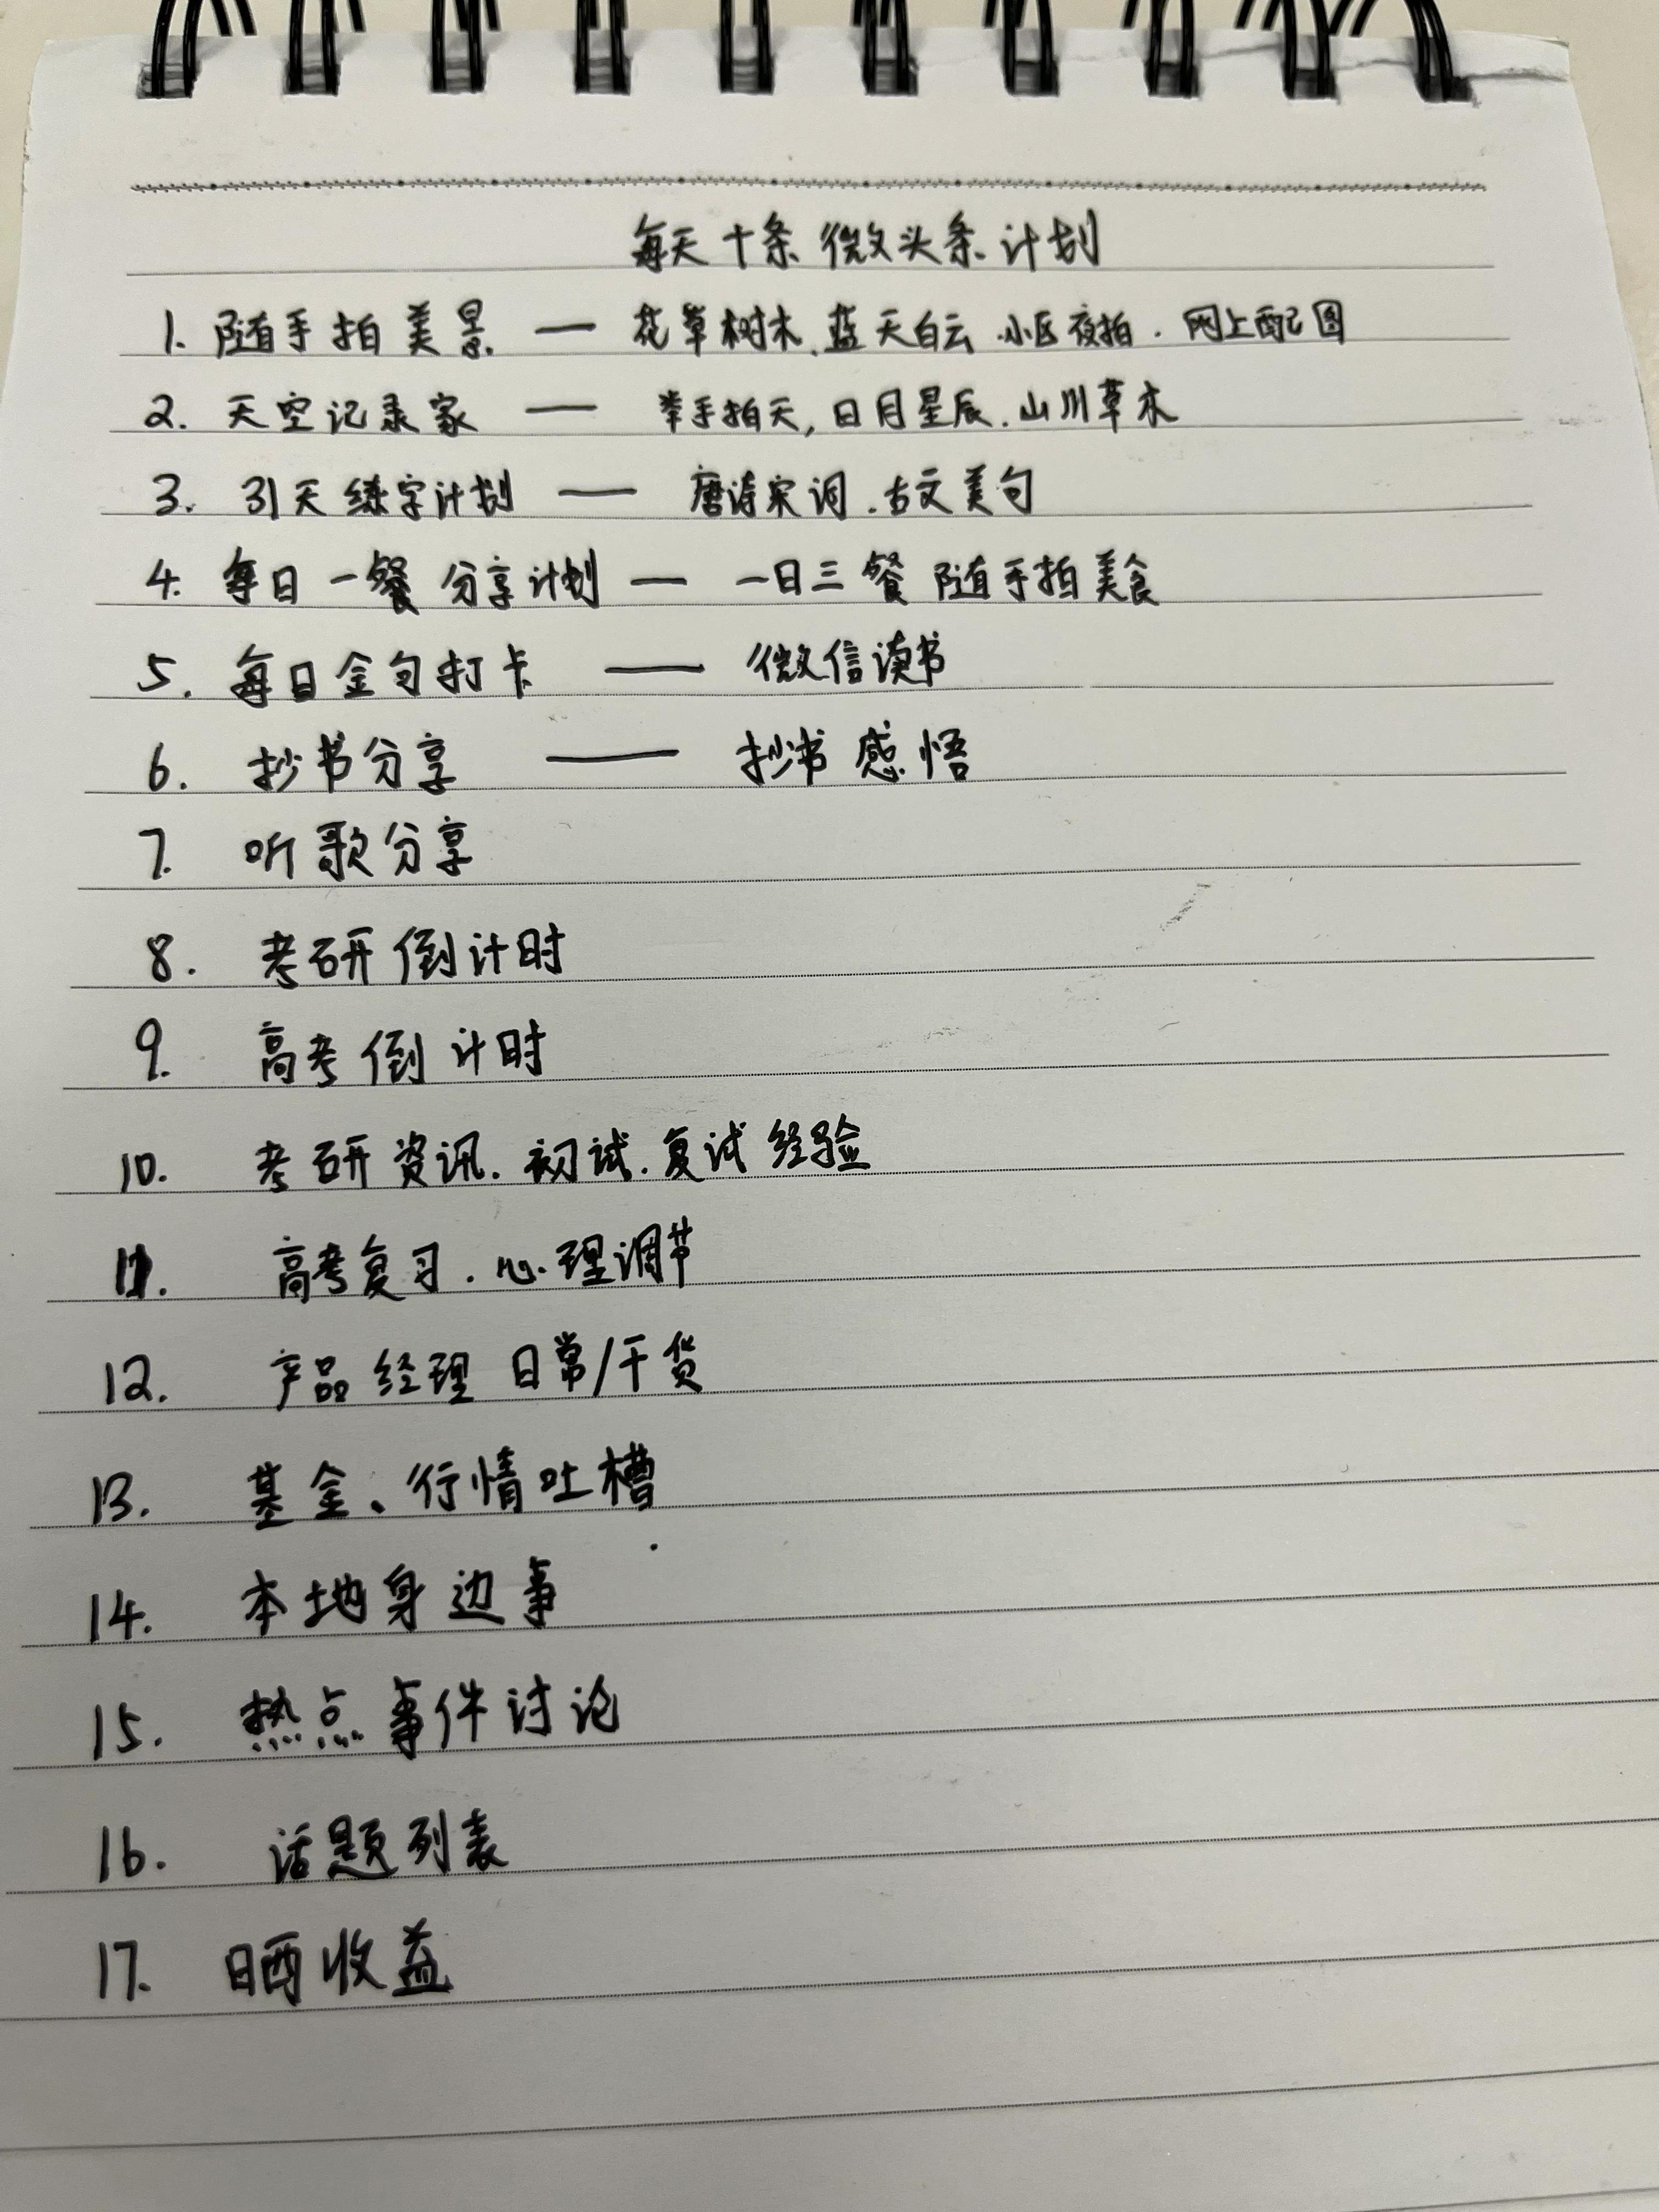 每天十条微头条计划
1. 随手拍美景 — 花草树木、蓝天白云、小区夜拍、网上配图
2. 天空记录家 — 举手拍天, 日月星辰、山川草木
3. 31天练字计划 — 唐诗宋词、古文美句
4. 每日一餐分享计划 — 一日三餐 随手拍美食
5. 每日金句打卡 — 微信读书
6. 抄书分享 — 抄书感悟
7. 听歌分享
8. 考研倒计时
9. 高考倒计时
10. 考研资讯、初试、复试经验
11. 高考复习、心理调节
12. 产品经理日常/干货
13. 基金、行情吐槽
14. 本地身边事
15. 热点事件讨论
16. 话题列表
17. 晒收益